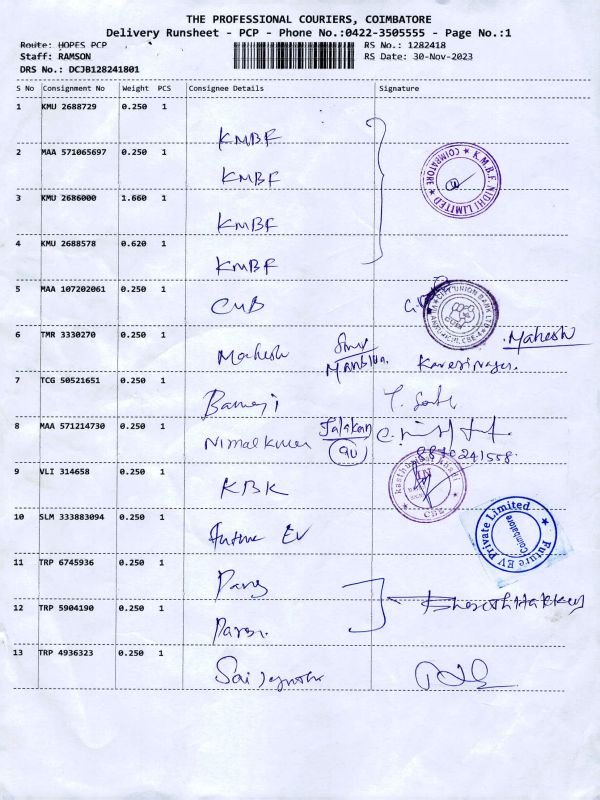 THE PROFESSIONAL COURIERS, COIMBATORE
Delivery Runsheet - PCP - Phone No.:0422-3505555 - Page No.:1
Route: HOPES PCP RS No.: 1282418
Staff: RAMSON RS Date: 30-Nov-2023
DRS No.: DCJB128241801
S No Consignment No Weight PCS Consignee Details Signature
1 KMU 2688729 0.250 1
KMBF
2 MAA 571065697 0.250 1
KMBF
K.M.B.F. NIDHI LIMITED ★ COIMBATORE ★
3 KMU 2686000 1.660 1
KMBF
4 KMU 2688578 0.620 1
KMBF
5 MAA 107202061 0.250 1
CUB
CITY UNION BANK LTD
6 TMR 3330270 0.250 1
Mahesh Mahesh
7 TCG 50521651 0.250 1
8 MAA 571214730 0.250 1
Nirmal Kumar
9 VLI 314658 0.250 1
KBK
CBE
10 SLM 333883094 0.250 1
Future EV
Future EV Private Limited ★ Coimbatore ★
11 TRP 6745936 0.250 1
12 TRP 5904190 0.250 1
13 TRP 4936323 0.250 1
Sai